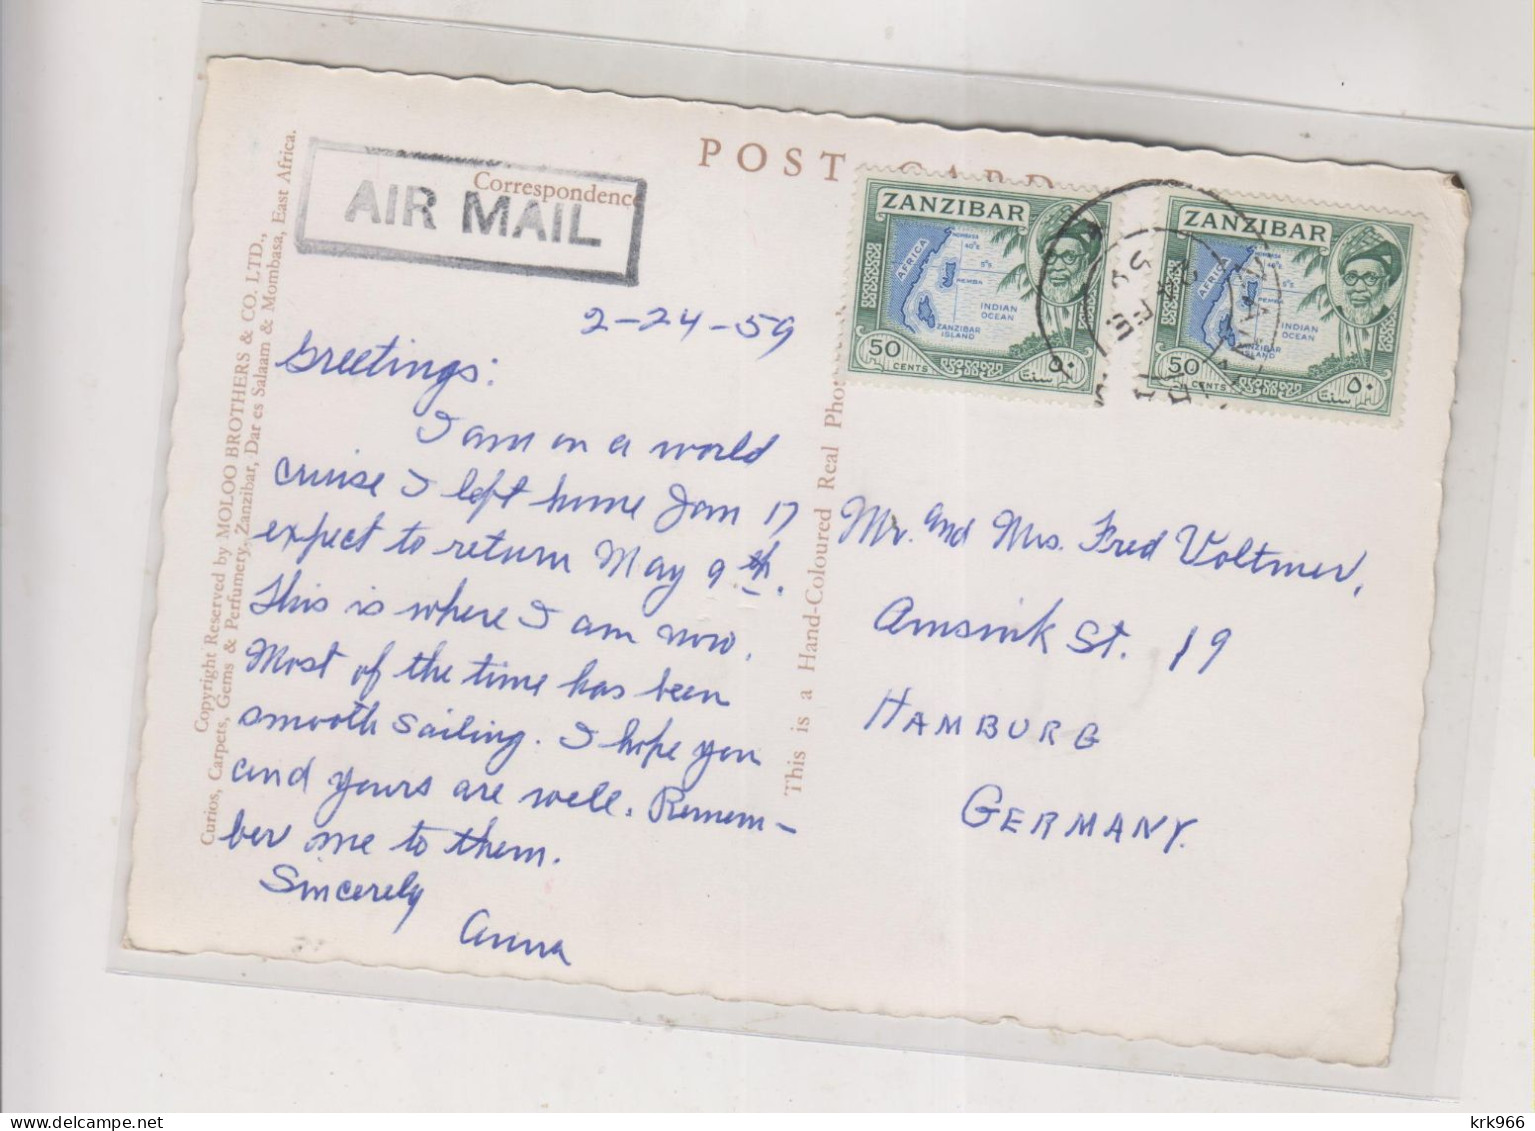 POST CARD
Correspondence
AIR MAIL
Copyright Reserved by MOLOO BROTHERS & CO. LTD.,
Curios, Carpets, Gems & Perfumery, Zanzibar, Dar es Salaam & Mombasa, East Africa.
2-24-59
Greetings:
I am on a world
cruise I left home Jan 17
expect to return May 9th.
This is where I am now.
Most of the time has been
smooth sailing. I hope you
and yours are well. Remem-
ber me to them.
Sincerely
Anna
This is a Hand-Coloured Real Pho
ZANZIBAR
MOMBASA
40°E
5°S
AFRICA
PEMBA
INDIAN
OCEAN
ZANZIBAR
ISLAND
50
CENTS
٥٠
سنت
ZANZIBAR
MOMBASA
40°E
5°S
AFRICA
PEMBA
INDIAN
OCEAN
ZANZIBAR
ISLAND
50
CENTS
٥٠
سنت
Mr. and Mrs. Fred Voltmer,
Amsink St. 19
HAMBURG
GERMANY.
krk966